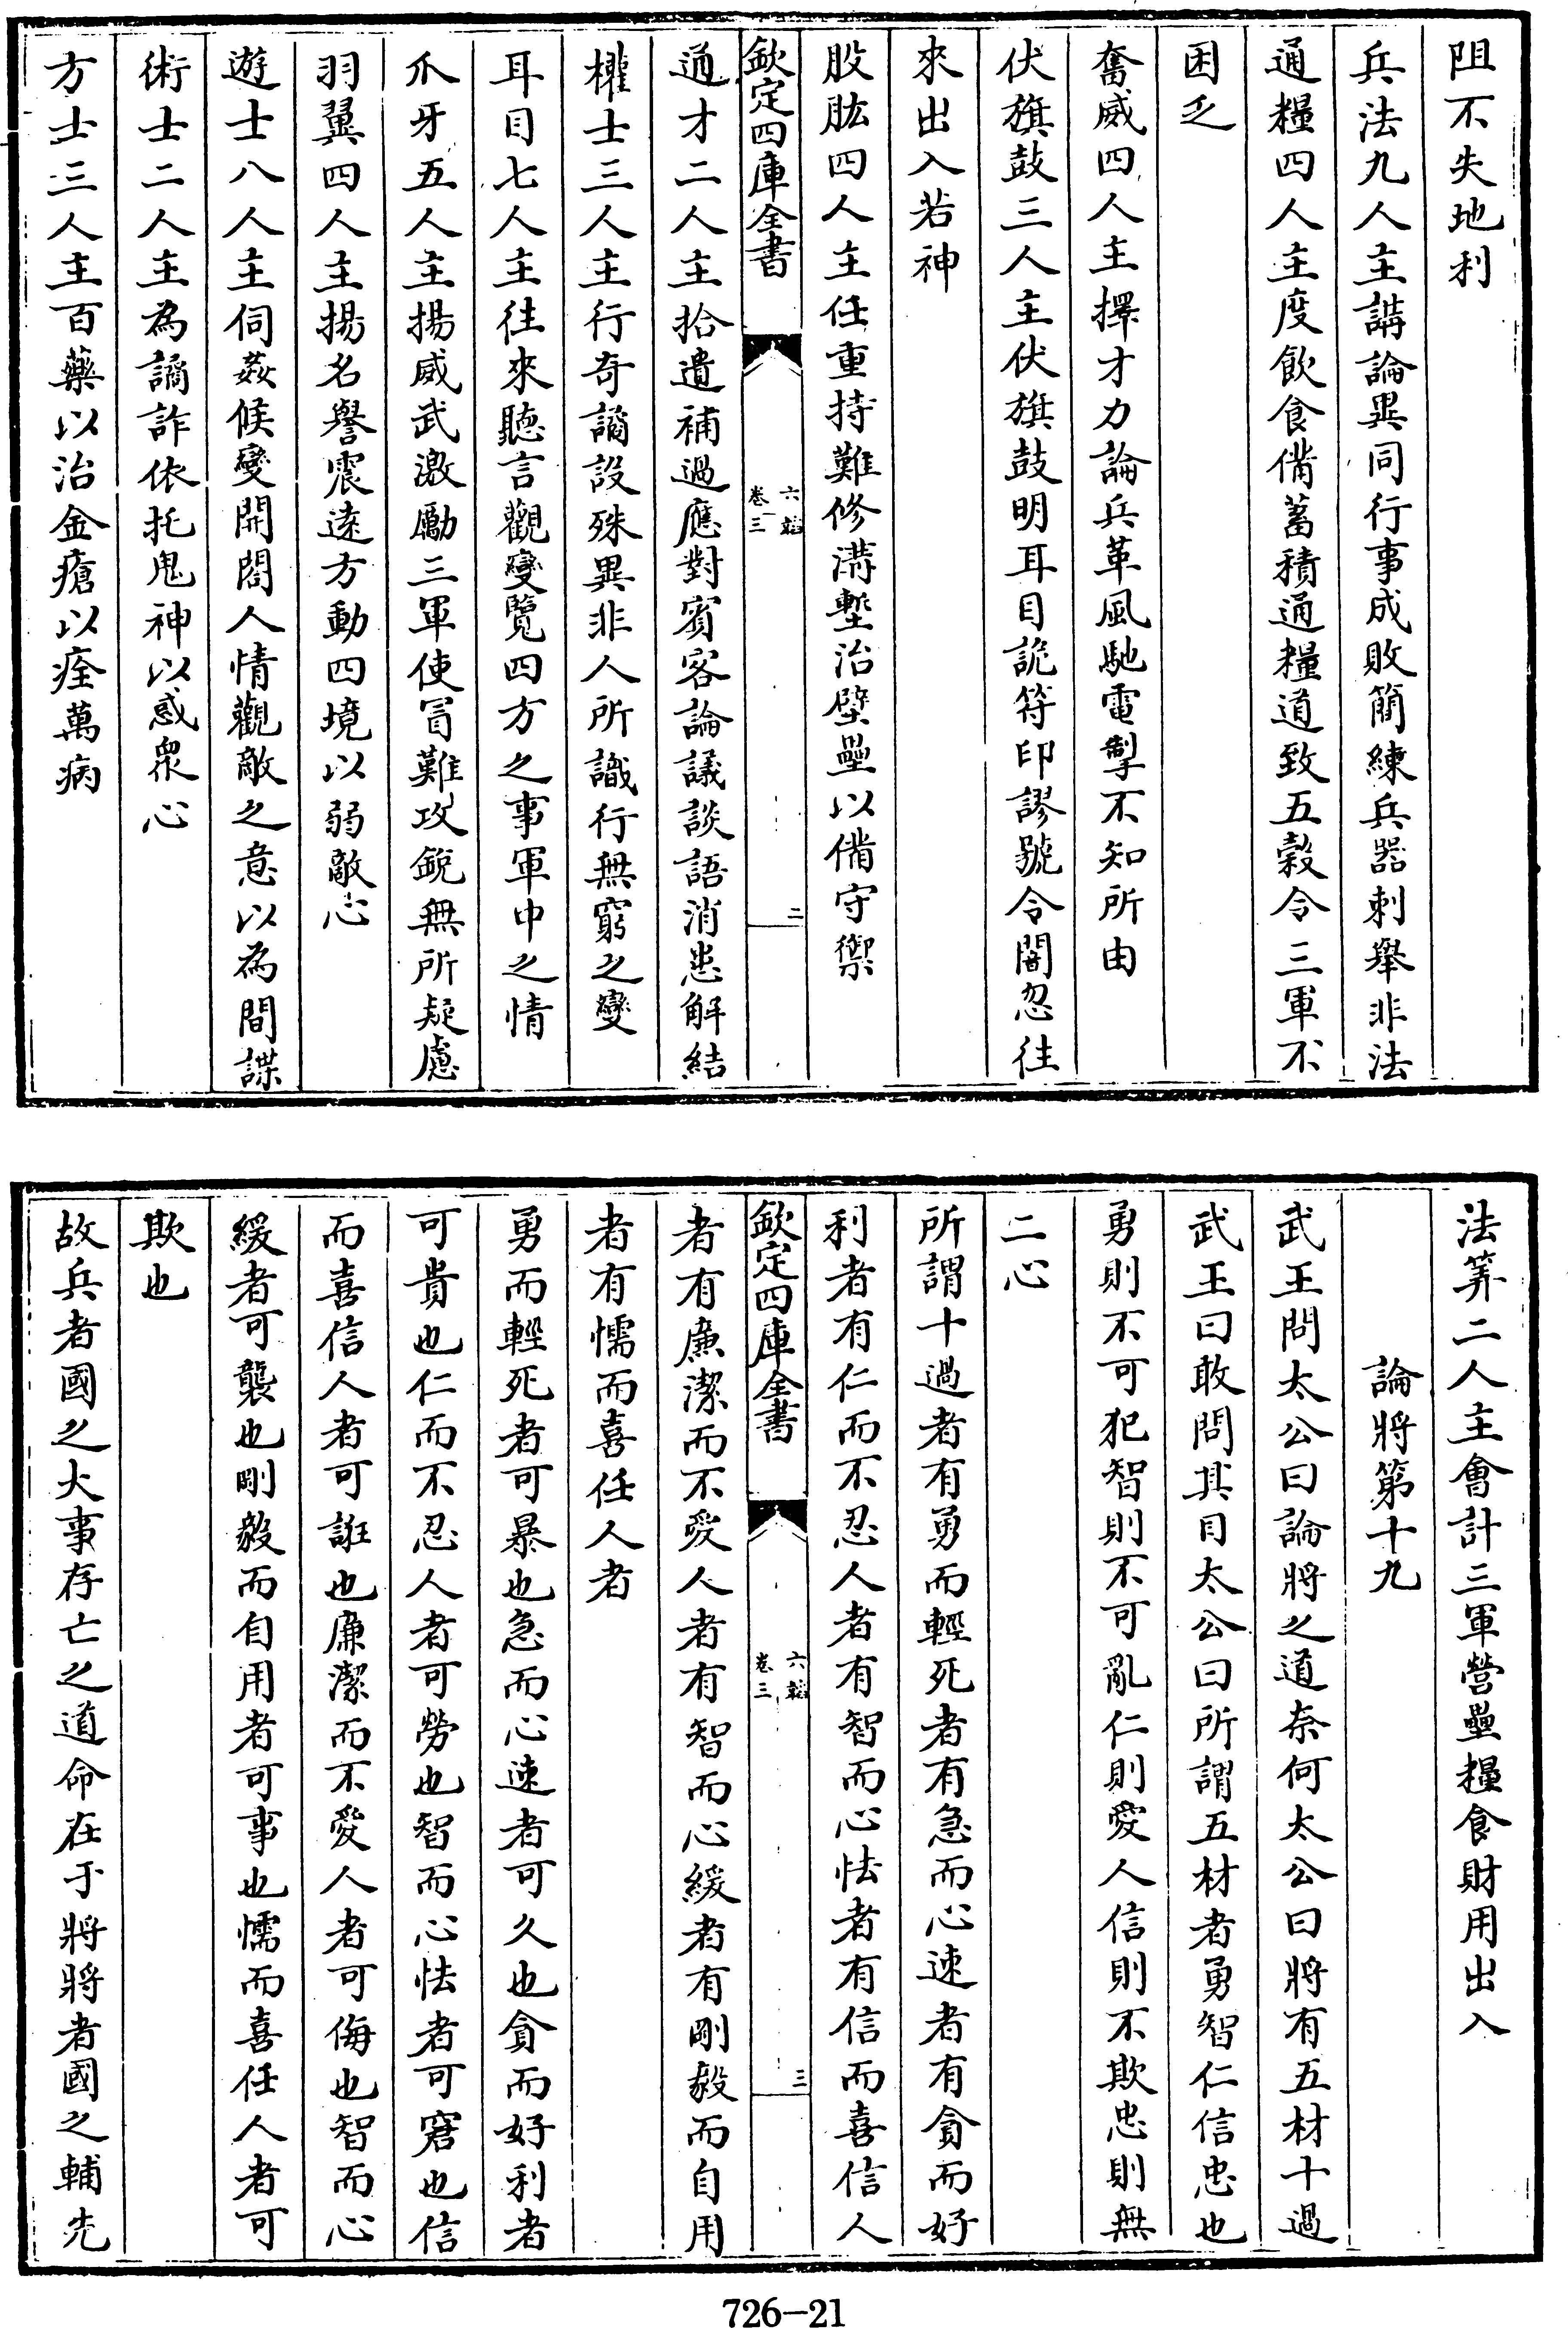 阻不失地利
兵法九人主講論異同行事成敗簡練兵器刺舉非法
通糧四人主度飲食備蓄積通糧道致五穀令三軍不
困乏
奮威四人主擇才力論兵革風馳電掣不知所由
伏旗鼓三人主伏旗鼓明耳目詭符印謬號令闇忽往
來出入若神
股肱四人主任重持難修溝塹治壁壘以備守禦
欽定四庫全書
六韜
卷三
二
通才二人主拾遺補過應對賓客論議談語消患解結
權士三人主行奇譎設殊異非人所識行無窮之變
耳目七人主往來聽言觀變覽四方之事軍中之情
爪牙五人主揚威武激勵三軍使冒難攻銳無所疑慮
羽翼四人主揚名譽震遠方動四境以弱敵心
遊士八人主伺姦候變開闔人情觀敵之意以為間諜
術士二人主為譎詐依托鬼神以惑衆心
方士三人主百藥以治金瘡以痊萬病
法筭二人主會計三軍營壘糧食財用出入
論將第十九
武王問太公曰論將之道奈何太公曰將有五材十過
武王曰敢問其目太公曰所謂五材者勇智仁信忠也
勇則不可犯智則不可亂仁則愛人信則不欺忠則無
二心
所謂十過者有勇而輕死者有急而心速者有貪而好
利者有仁而不忍人者有智而心怯者有信而喜信人
欽定四庫全書
六韜
卷三
三
者有廉潔而不愛人者有智而心緩者有剛毅而自用
者有懦而喜任人者
勇而輕死者可暴也急而心速者可久也貪而好利者
可貴也仁而不忍人者可勞也智而心怯者可窘也信
而喜信人者可誑也廉潔而不愛人者可侮也智而心
緩者可襲也剛毅而自用者可事也懦而喜任人者可
欺也
故兵者國之大事存亡之道命在于將將者國之輔先
726-21